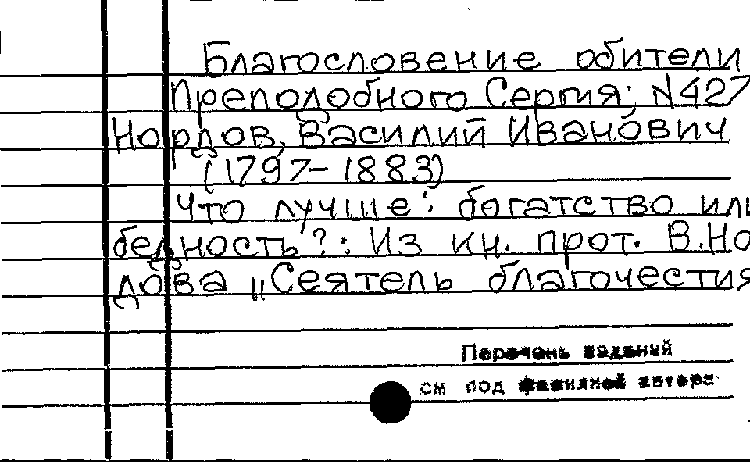 Благословение обители
Преподобного Сергия; N427
Нордов, Василий Иванович
(1797-1883)
Что лучше: богатство или
бедность?: Из кн. прот. В.Но
дова „Сеятель благочестия
Перечень изданий
см под фамилией автора